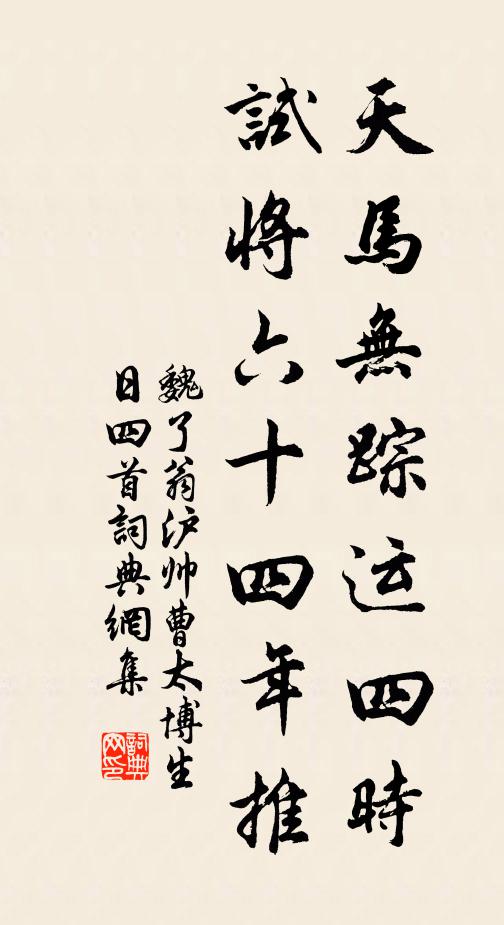 天馬無踪运四時
試將六十四年推
魏了翁沪帅曹太博生
日四首詞典網集
詞典
网印